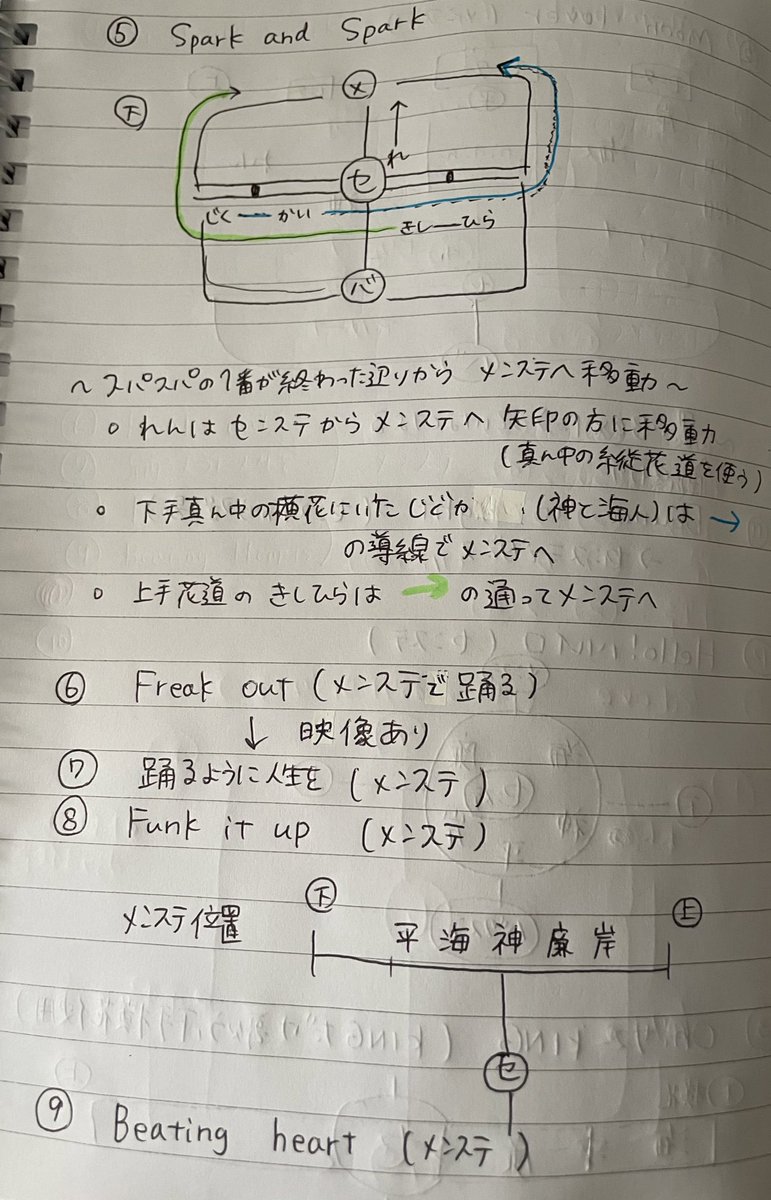 ⑤ Spark and Spark
メ
下
れ
セ
じぐ ー かい
きしーひら
バ
～スパスパの1番が終わった辺りから メンステへ移動～
○ れんは センステから メンステへ 矢印の方に移動
(真ん中の縦花道を使う)
○ 下手真ん中の横花にいた じぐか (神と海人)は →
の導線でメンステへ
○ 上手花道の きしひらは → の通ってメンステへ
⑥ Freak out (メンステで踊る)
↓ 映像あり
⑦ 踊るように人生を (メンステ)
⑧ Funk it up (メンステ)
メンステ位置
下 上
平 海 神 廉 岸
セ
⑨ Beating heart (メンステ)